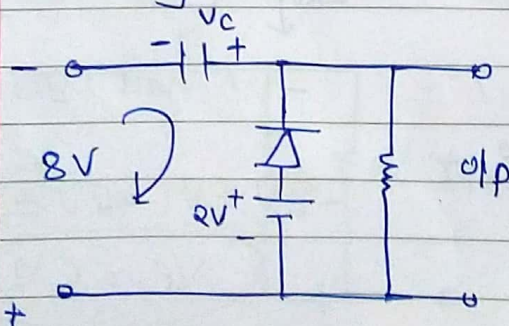 Vc
- - +
8V
2V +
-
o/p
+